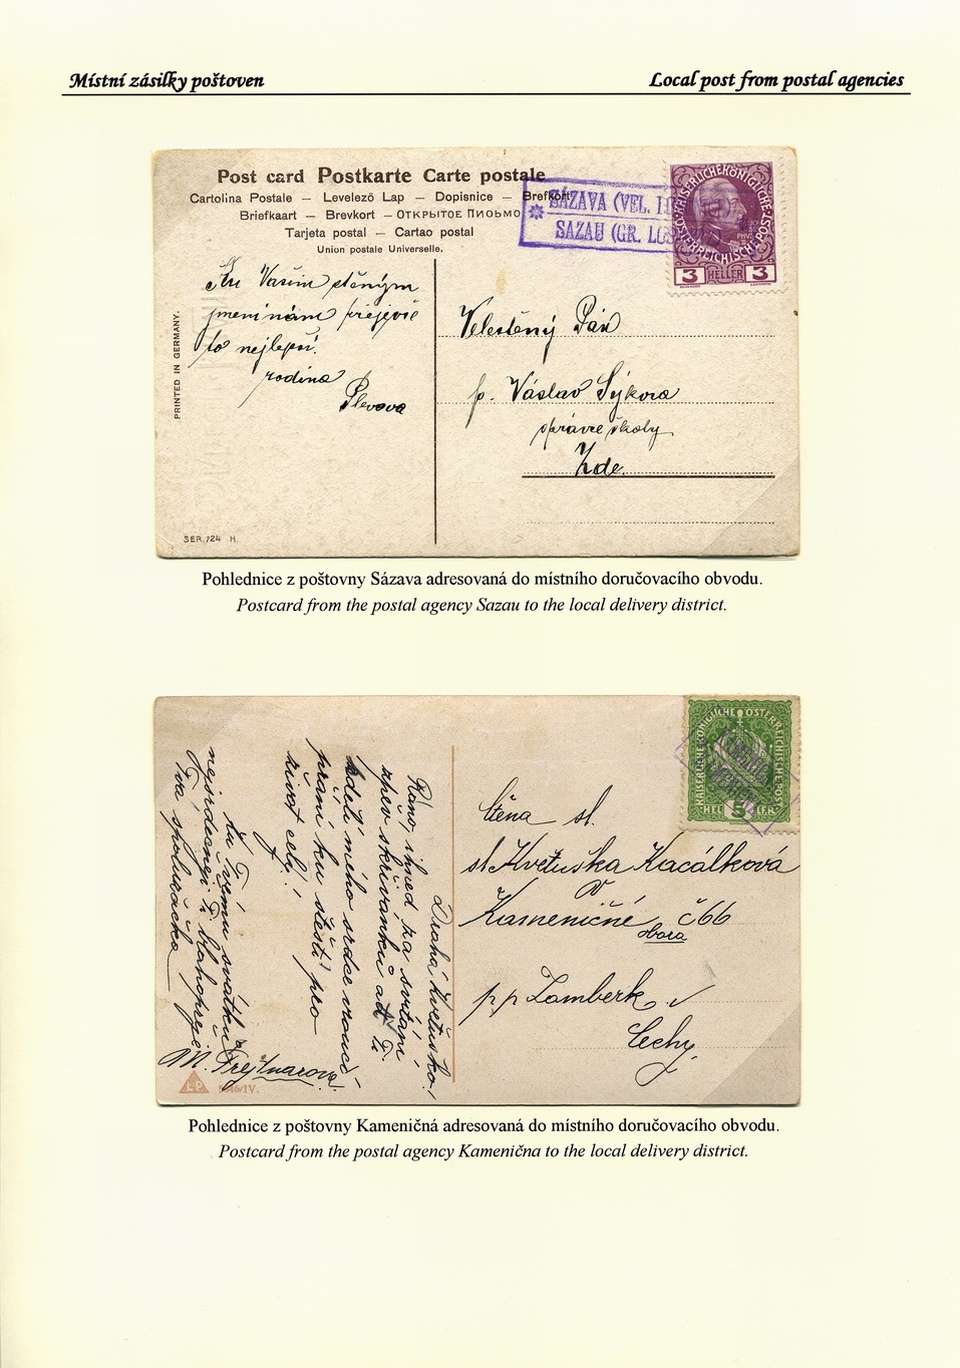 Místní zásilky poštoven
Local post from postal agencies
Post card Postkarte Carte postale
Cartolina Postale — Levelező Lap — Dopisnice — Brefkort
Briefkaart — Brevkort — Открытое Письмо
Tarjeta postal — Cartao postal
Union postale Universelle.
PRINTED IN GERMANY.
SÁZAVA (VEL.
SAZAU (GR.
KAISERLICHE KÖNIGLICHE
ÖSTERREICHISCHE POST
3 HELLER 3
Ku Vašim jměným
jmeninám přejeme
to nejlepší.
rodina
Plevova
Velectěný Pán
p. Václav Sýkora
správce školy
Zde.
SER. 724 H.
Pohlednice z poštovny Sázava adresovaná do místního doručovacího obvodu.
Postcard from the postal agency Sazau to the local delivery district.
KAISERLICHE KÖNIGLICHE ÖSTERREICHISCHE POST
5
HELLER
Ctěna sl.
sl. Květuška Kacálková
v
Kameničné č 66
obora
p p Žamberk
Čechy.
Drahá Květuško!
Ráno, ihned za svítání
zpěv skřivánků ať Ti
sdělí mého srdce vroucí
přání ku štěstí pro
život celý!
Ku Tvému svátku
nejsrdečněji Ti blahopřeje
Tva spolužačka
M. Frejtnarova.
L&P
/IV.
Pohlednice z poštovny Kameničná adresovaná do místního doručovacího obvodu.
Postcard from the postal agency Kamenična to the local delivery district.